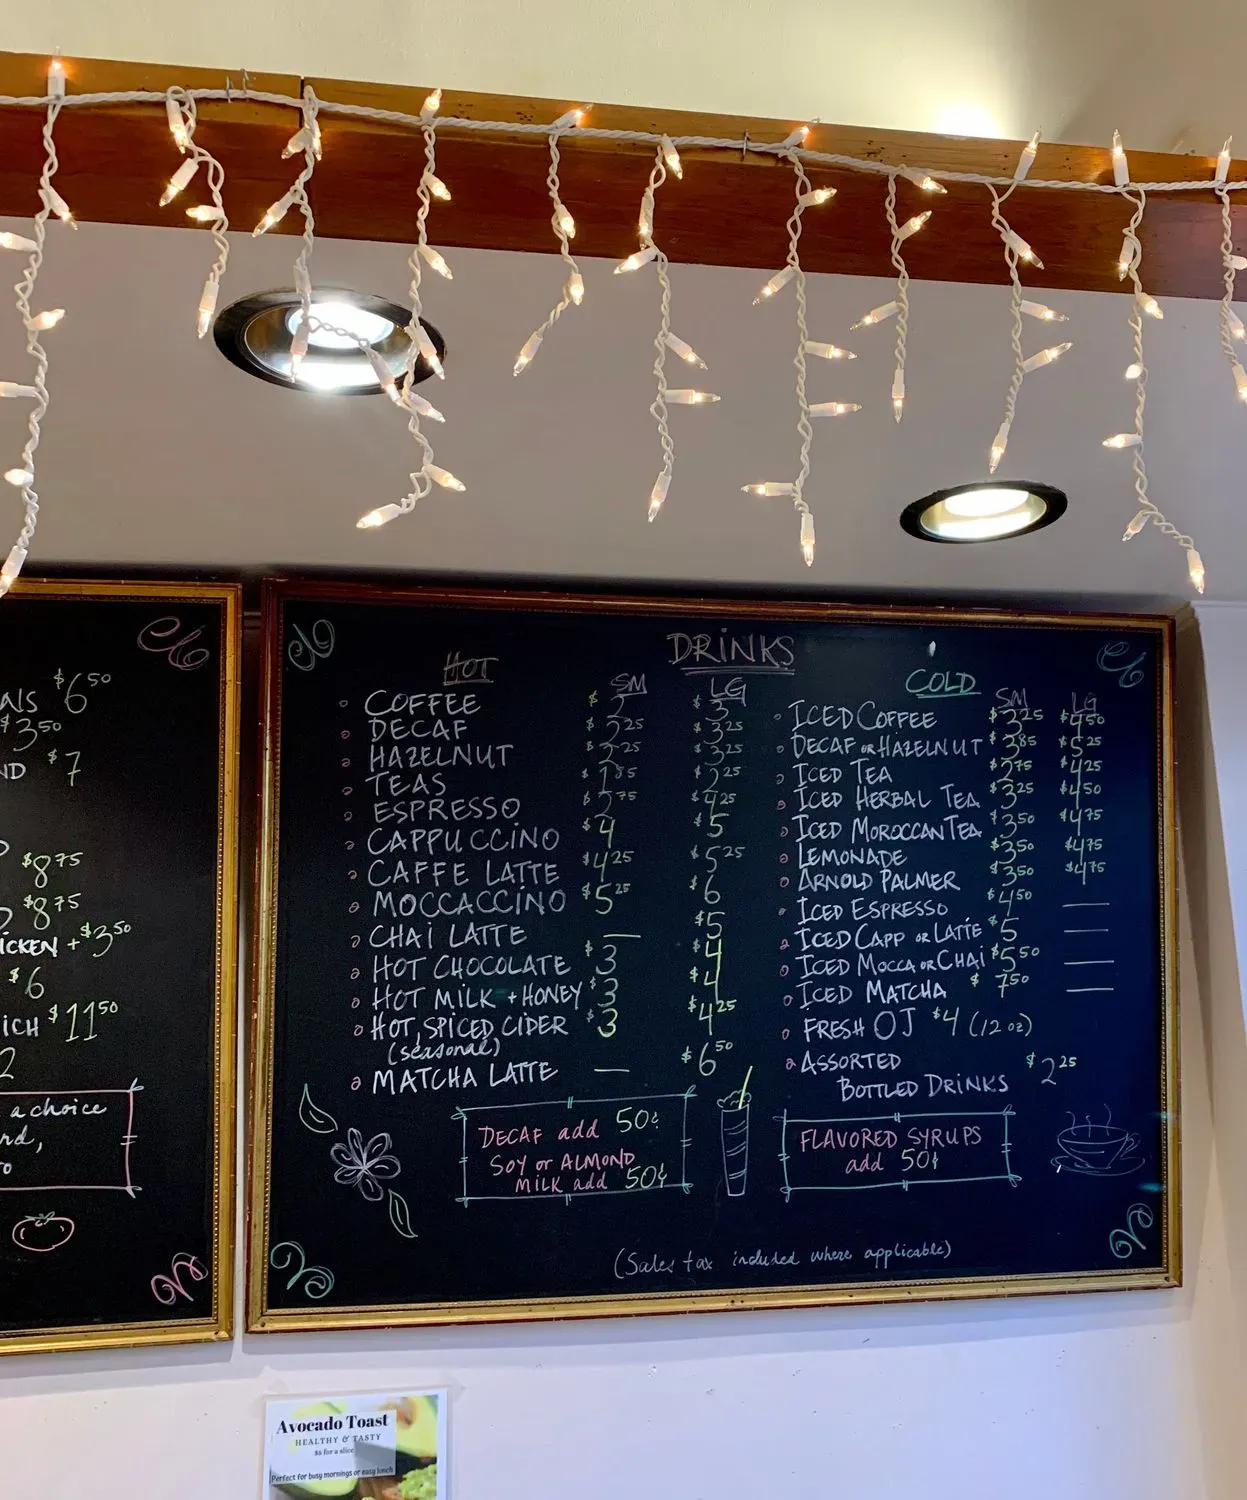 NS $650
$350
ND $7
$875
$875
ICKEN +$350
$6
ICH $1150
2
a choice
rd,
ro
DRINKS
HOT
SM LG
COFFEE $2 $3
DECAF $225 $325
HAZELNUT $225 $325
TEAS $185 $225
ESPRESSO $275 $425
CAPPUCCINO $4 $5
CAFFE LATTE $425 $525
MOCCACCINO $525 $6
CHAI LATTE — $5
HOT CHOCOLATE $3 $4
HOT MILK + HONEY $3 $4
HOT, SPICED CIDER $3 $425
(seasonal)
MATCHA LATTE — $650
DECAF add 50¢
SOY or ALMOND
MILK add 50¢
COLD
SM LG
ICED COFFEE $325 $450
DECAF or HAZELNUT $385 $525
ICED TEA $275 $425
ICED HERBAL TEA $325 $450
ICED MOROCCAN TEA $350 $475
LEMONADE $350 $475
ARNOLD PALMER $350 $475
ICED ESPRESSO $450 —
ICED CAPP or LATTE $5 —
ICED MOCCA or CHAI $550 —
ICED MATCHA $750 —
FRESH OJ $4 (12 oz)
ASSORTED
BOTTLED DRINKS $225
FLAVORED SYRUPS
add 50¢
(Sales tax included where applicable)
Avocado Toast
HEALTHY & TASTY
$6 for a slice
Perfect for busy mornings or easy lunch